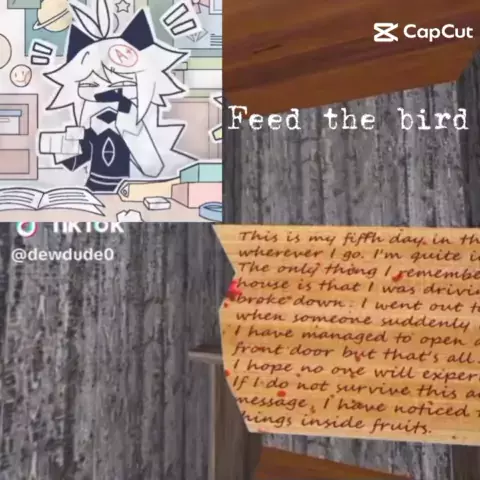 A+
CapCut
Feed the bird
TikTok
@dewdude0
This is my fifth day in
wherever I go. I'm quite
The only thing I remember
house is that I was
broke down. I went out
when someone suddenly
I have managed to open
front door but that's all.
I hope no one will
If I do not survive this
message, I have noticed
things inside fruits.